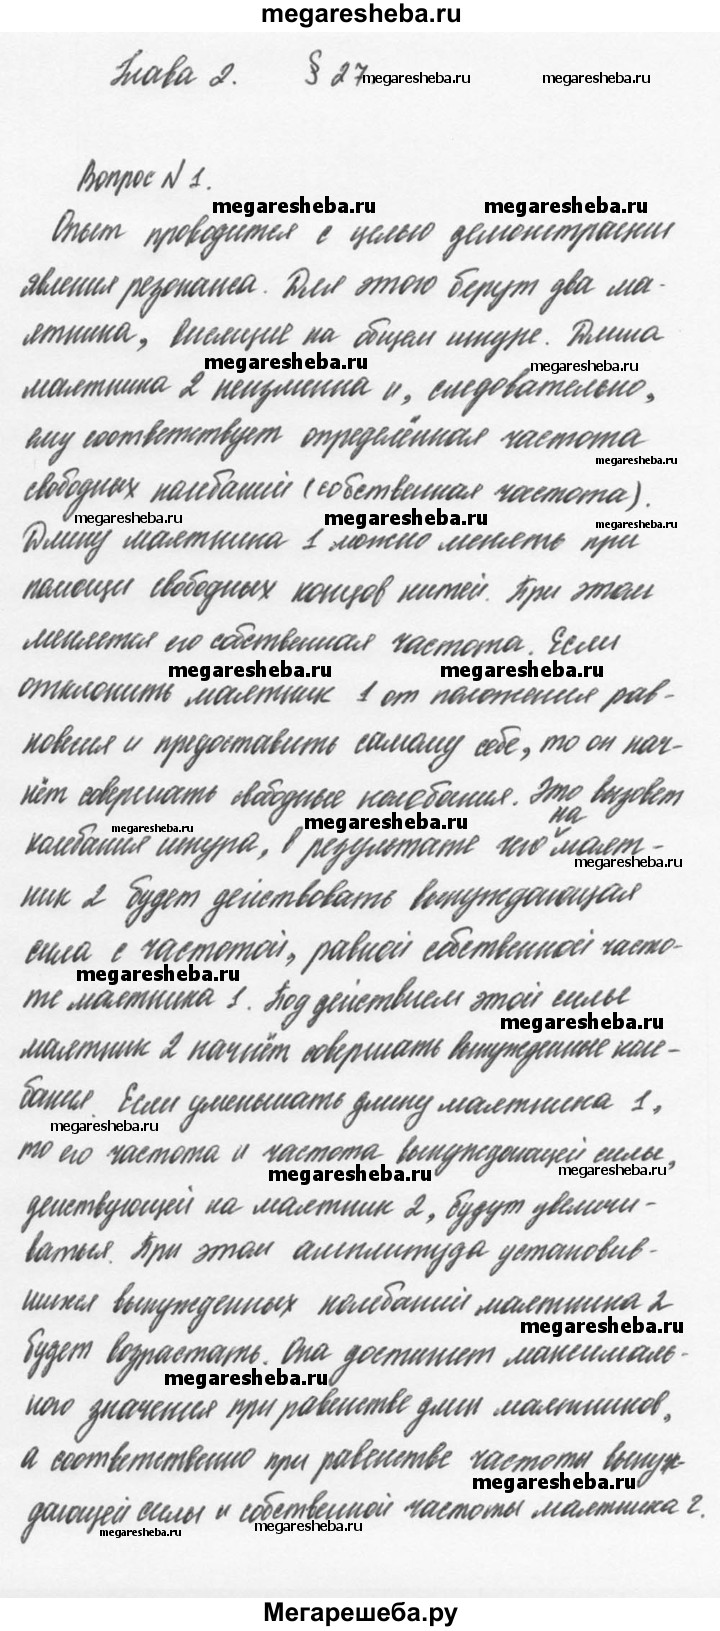 megaresheba.ru
Глава 2. § 27
megaresheba.ru megaresheba.ru
Вопрос N 1.
megaresheba.ru megaresheba.ru
Опыт проводится с целью демонстрации
явления резонанса. Для этого берут два ма-
ятника, висящие на общем шнуре. Длина
megaresheba.ru megaresheba.ru
маятника 2 неизменна и, следовательно,
ему соответствует определённая частота
megaresheba.ru
свободных колебаний (собственная частота).
megaresheba.ru megaresheba.ru megaresheba.ru
Длину маятника 1 можно менять при
помощи свободных концов нитей. При этом
меняется его собственная частота. Если
megaresheba.ru megaresheba.ru
отклонить маятник 1 от положения рав-
новесия и предоставить самому себе, то он нач-
нёт совершать свободные колебания. Это вызовет
megaresheba.ru megaresheba.ru
колебания шнура, в результате чего на маят-
megaresheba.ru
ник 2 будет действовать вынуждающая
сила с частотой, равной собственной часто-
megaresheba.ru
те маятника 1. Под действием этой силы
megaresheba.ru
маятник 2 начнёт совершать вынужденные коле-
бания. Если уменьшать длину маятника 1,
megaresheba.ru
то его частота и частота вынуждающей силы,
megaresheba.ru megaresheba.ru
действующей на маятник 2, будут увеличи-
ваться. При этом амплитуда установив-
шихся вынужденных колебаний маятника 2
megaresheba.ru
будет возрастать. Она достигнет максималь-
megaresheba.ru
ного значения при равенстве длин маятников,
а соответственно при равенстве частоты вынуж-
megaresheba.ru
дающей силы и собственной частоты маятника 2.
megaresheba.ru megaresheba.ru
Мегарешеба.ру